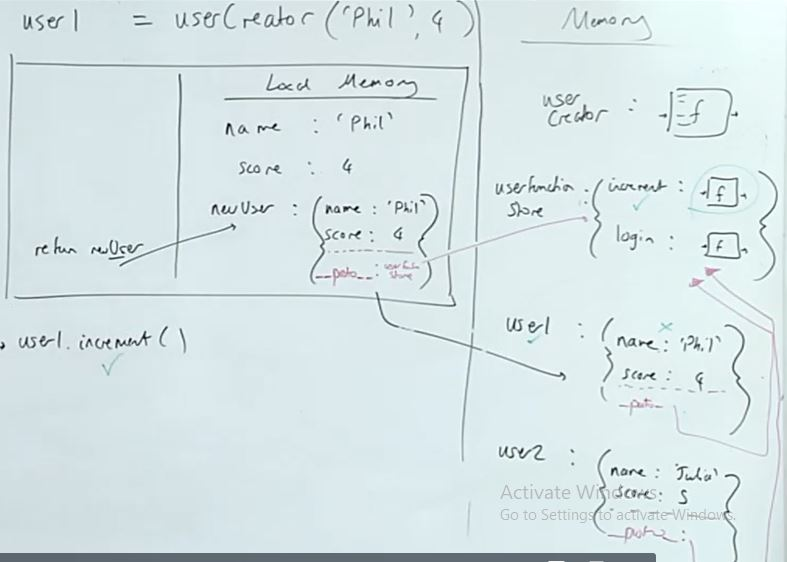 user1 = userCreator ('Phil', 4)
Local Memory
name : 'Phil'
score : 4
newUser : { name : 'Phil'
score : 4
__proto__ : userFunction
Store }
return newUser
user1.increment ( )
Memory
user
Creator : f
userFunction
Store : { increment : f
login : f }
user1 : { name : 'Phil'
score : 4
__proto__ }
user2 : { name : 'Julia'
score : 5
__proto__ :
Activate Windows
Go to Settings to activate Windows.